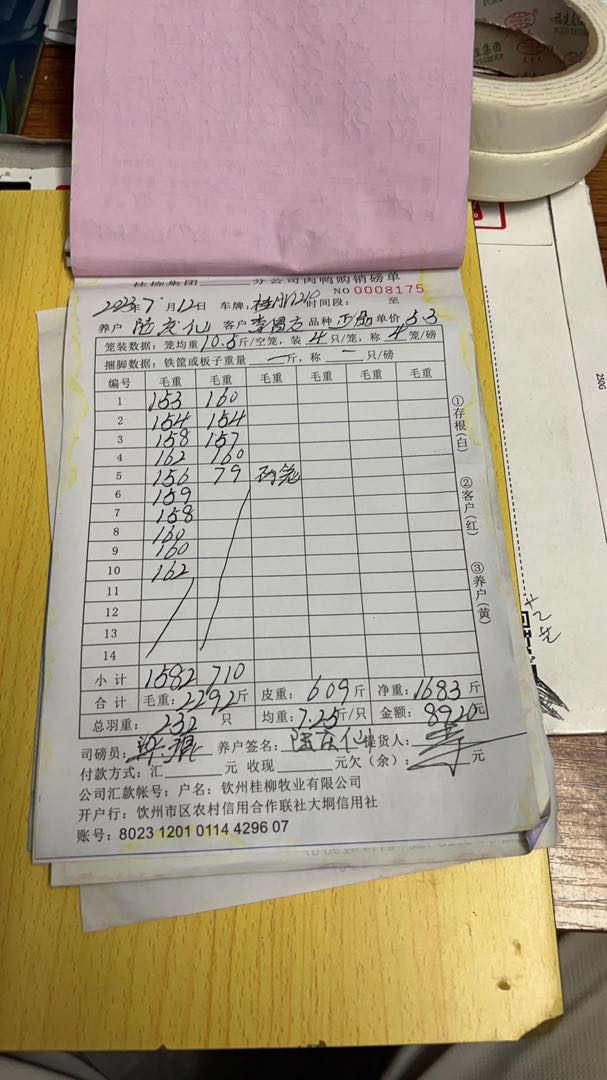 桂柳集团 分公司肉鸭购销磅单
NO 0008175
2023年7月12日 车牌: 时间段: 至
养户 陆庆仙 客户 李 品种 单价 5.3
笼装数据: 笼均重 10.5 斤/空笼, 装 4 只/笼, 称 4 笼/磅
捆脚数据: 铁筐或板子重量 — 斤, 称 — 只/磅
编号 毛重 毛重 毛重 毛重 毛重 毛重
1 153 160
2 154 154
3 158 157
4 162 160
5 156 79 两笼
6 159
7 158
8 160
9 160
10 162
11
12
13
14
小计 1582 710
合计 毛重: 2292 斤 皮重: 609 斤 净重: 1683 斤
总羽重: 232 只 均重: 7.25 斤/只 金额: 8920 元
司磅员: 养户签名: 陆庆仙 提货人: 李
付款方式: 汇 元 收现 元欠(余): 元
公司汇款帐号: 户名: 钦州桂柳牧业有限公司
开户行: 钦州市区农村信用合作联社大垌信用社
账号: 8023 1201 0114 4296 07
①存根(白)
②客户(红)
③养户(黄)
250G